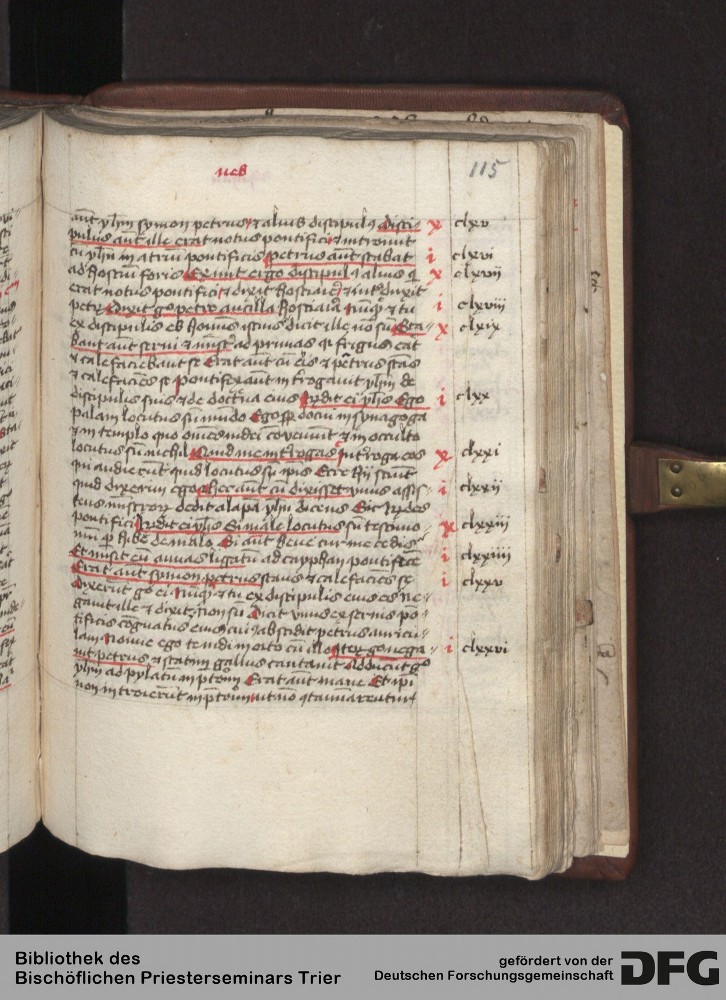 nes
115
aūt yhm symon petrus et alius discipulꝯ disci- x clxv
pulus aūt ille erat notus pontifici et introiuit
cū yhū in atriū pontificis petrus aūt stabat i clxvi
ad hostiū foris Exiuit ergo discipulꝯ alius x clxvii
erat notus pontifici et dixit hostiarie et introduxit
petrū dixit go petro ancilla hostiaria nūqͥ et tu i clxviii
ex discipulis es hominis istius dicit ille nō sū Sta- x clxix
bant aūt serui et ministri ad prunas qr frigus erat
et calefaciebant se Erat aūt cū eis et petrus stās
et calefaciēs se pontifex aūt introgauit yhm de
discipulis suis et de doctrina eius Rūdit ei yhs Ego i clxx
palam locutus sū mūdo Ego sp docui in synagoga
et in templo quo omnes iudei conueniūt et in occulto
locutus sū nichil Quid me introgas introga eos x clxxi
qui audierūt quid locutus sū ipis Ecce hii sciūt
quid dixerim ego hec aūt cū dixisset vnus assis- i clxxii
tens ministrorū dedit alapā yhu dicens Sic rūdes
pontifici Rūdit ei yhs Si male locutus sū testimo- x clxxiii
niū phibe de malo Si aūt bene cur me cedis
Et misit eū annas ligatū ad cayphan pontificē i clxxiiii
Erat aūt symon petrus stans et calefaciēs se i clxxv
Dixerūt go ei nūqͥ et tu ex discipulis eius es ne-
gauit ille et dixit nō sū Dicit vnus ex seruis pō-
tificis cognatus eius cuiꝯ abscidit petrus auricu-
lam Nonne ego te uidi in orto cū illo Iterū go nega- i clxxvi
uit petrus et statim gallus cantauit Adducūt go
yhm ad pylatū in ptoriū Erat aūt mane Et ipi
non introierūt in ptoriū ut nō contaminarentur
Bibliothek des
Bischöflichen Priesterseminars Trier
gefördert von der
Deutschen Forschungsgemeinschaft
DFG